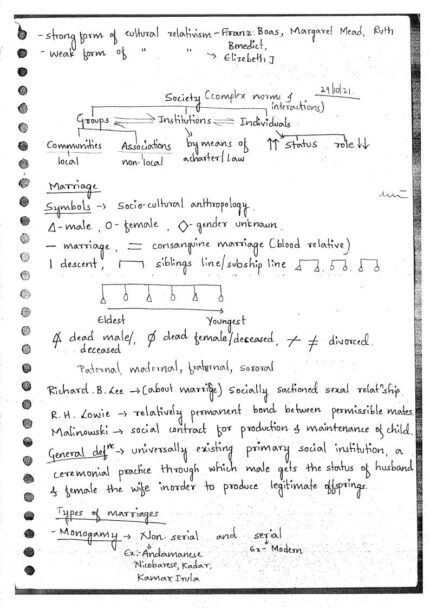 - strong form of cultural relativism - Franz Boas, Margaret Mead, Ruth Benedict,
- weak form of " " → Elizebeth J
29/10/21
Society (complex norms & interactions)
Groups ⇌ Institutions ⇌ Individuals
Communities Associations by means of ↑↑ status role ↓↓
local non-local acharter/Law
Marriage
Symbols → Socio-cultural anthropology.
Δ - male, O - female, ◇ - gender unknown.
— marriage, = consanguine marriage (blood relative)
| descent, siblings line/subship line
Eldest Youngest
dead male/, Ø dead female/deceased, ≠ divorced.
deceased
Paternal, maternal, fraternal, sororal
Richard. B. Lee → (about marrige) socially sactioned sexal relatⁿship.
R. H. Lowie → relatively permanent bond between permissible mates.
Malinowski → social contract for production & maintenance of child.
General defⁿᵉ → universally existing primary social institution, a
ceremonial practice through which male gets the status of husband
& female the wife inorder to produce legitimate offsprings.
Types of marriages
- Monogamy → Non serial and serial
Ex:- Andamanese Ex - Modern
Nicobarese, Kadar,
Kamar, Irula